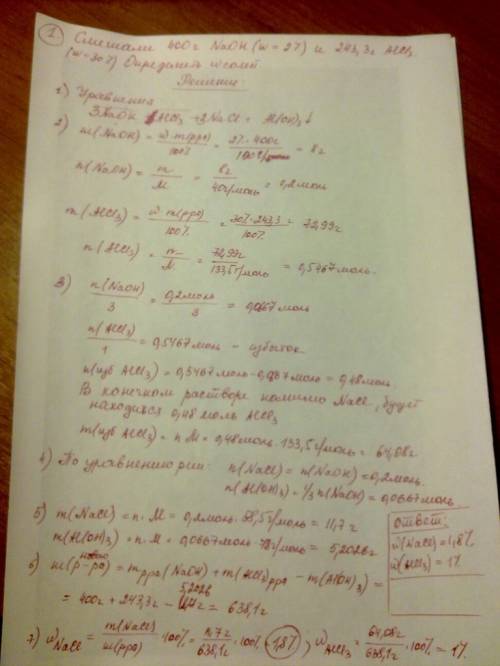 1. Смешали 400г NaOH (w = 2%) и 243,3г AlCl3
(w=30%) Определить w солей
Решение:
1) Уравнения
3NaOH + AlCl3 → 3NaCl + Al(OH)3↓
2) m(NaOH) = w·m(рра)/100% = 2%·400г/100% = 8г
n(NaOH) = m/M = 8г/40г/моль = 0,2моль
m(AlCl3) = w·m(рра)/100% = 30%·243,3/100% = 72,99г
n(AlCl3) = m/M = 72,99г/133,5г/моль = 0,5467моль.
3) n(NaOH)/3 = 0,2моль/3 = 0,0667моль
n(AlCl3)/1 = 0,5467моль - избыток
n(изб AlCl3) = 0,5467моль-0,0667моль = 0,48моль
В конечном растворе помимо NaCl, будет
находится 0,48 моль AlCl3
m(изб AlCl3) = n·M = 0,48моль·133,5г/моль = 64,08г
4) По уравнению рии: n(NaCl) = n(NaOH) = 0,2моль.
n(Al(OH)3) = 1/3 n(NaOH) = 0,0667моль
5) m(NaCl) = n·M = 0,2моль·58,5г/моль = 11,7г
m(Al(OH)3) = n·M = 0,0667моль·78г/моль = 5,2026г
6) m(р-ра нового) = mрра(NaOH) + m(AlCl3)рра - m(Al(OH)3) =
= 400г + 243,3г - 5,2026 = 638,1г
7) wNaCl = m(NaCl)/m(рра)·100% = 11,7г/638,1г·100% = 1,8%; wAlCl3 = 64,08г/638,1г·100% = 1%
Ответ:
w(NaCl) = 1,8%
w(AlCl3) = 1%